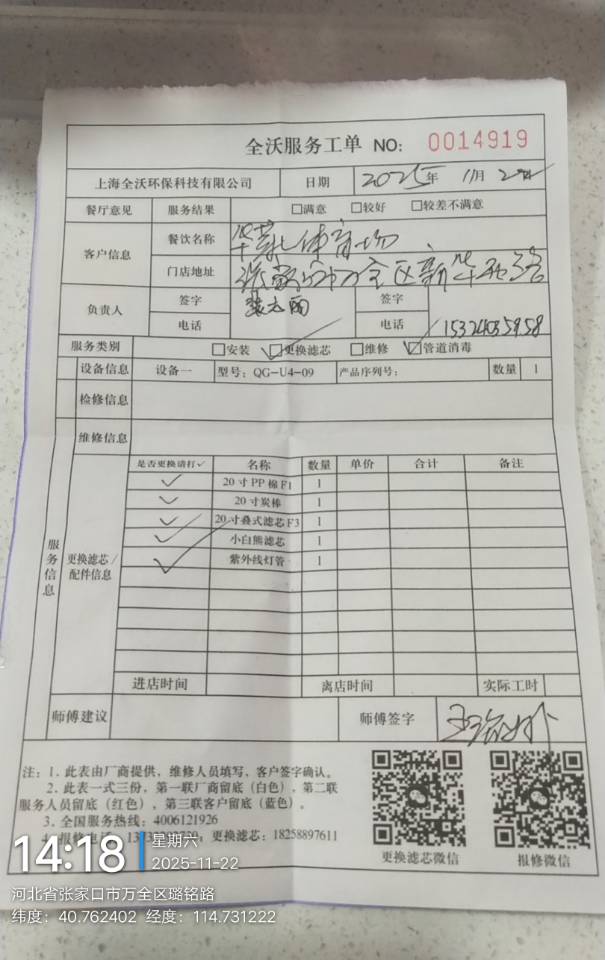 全沃服务工单 NO: 0014919
上海全沃环保科技有限公司 日期 2025年 11月
餐厅意见 服务结果 □满意 □较好 □较差不满意
客户信息 餐饮名称 体育场
门店地址 万全区新华西路
负责人 签字 签字
电话 电话 15324035958
服务类别 □安装 ☑更换滤芯 □维修 ☑管道消毒
设备信息 设备一 型号: QG-U4-09 产品序列号: 数量 1
检修信息
维修信息
服务信息
更换滤芯/配件信息
是否更换请打✓ 名称 数量 单价 合计 备注
✓ 20寸PP棉F1 1
✓ 20寸炭棒 1
✓ 20寸叠式滤芯F3 1
✓ 小白熊滤芯 1
✓ 紫外线灯管 1
进店时间 离店时间 实际工时
师傅建议 师傅签字
注: 1. 此表由厂商提供，维修人员填写，客户签字确认。
2. 此表一式三份，第一联厂商留底（白色），第二联
服务人员留底（红色），第三联客户留底（蓝色）。
3. 全国服务热线: 4006121926
4. 报修电话: 更换滤芯: 18258897611
更换滤芯微信 报修微信
14:18 星期六
2025-11-22
河北省张家口市万全区璐铭路
纬度: 40.762402 经度: 114.731222